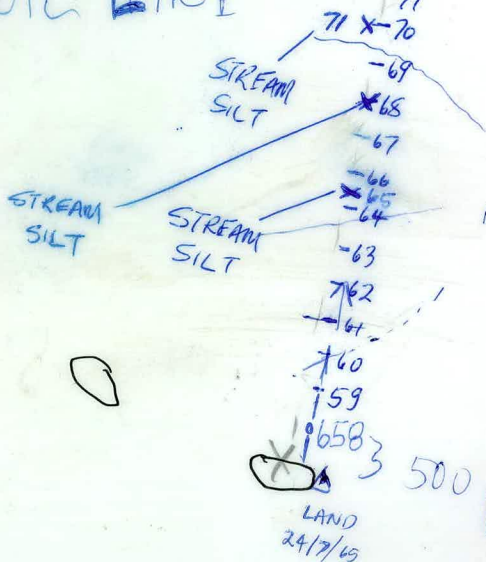 71 70
69
STREAM
SILT
68
67
66
65
64
STREAM
SILT
STREAM
SILT
63
62
61
60
59
658
500
LAND